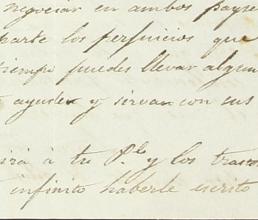 negociar en ambos payse
parte los perjuicios que
tiempo puedes llevar algun
ayuden y sirvan con sus
irá à tu P.te y los trasc
infinito haberle escrito